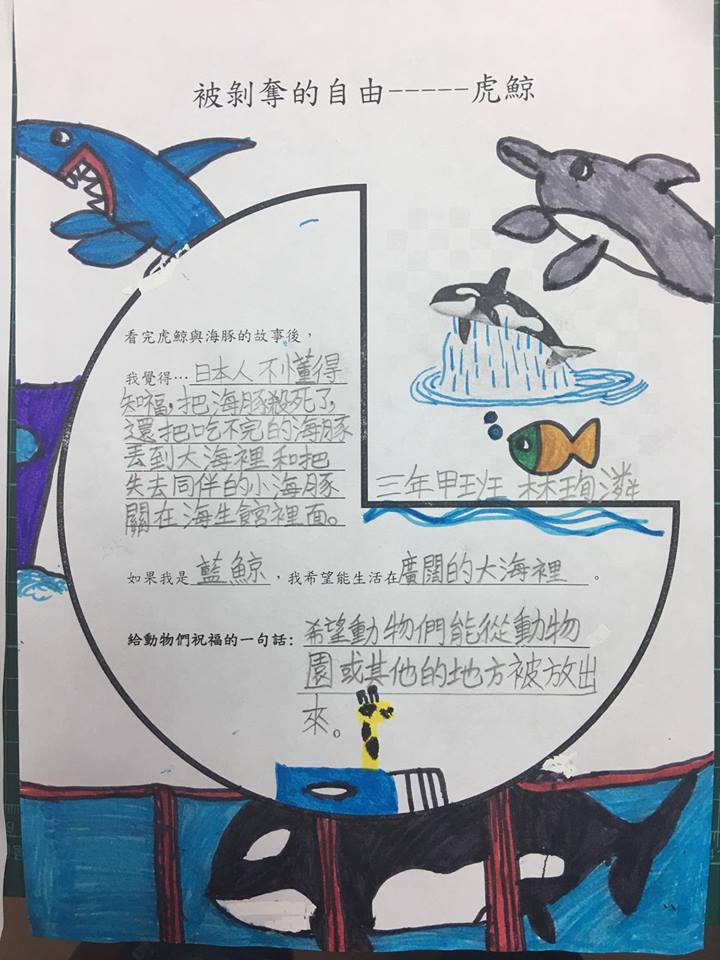 被剝奪的自由-----虎鯨
看完虎鯨與海豚的故事後，
我覺得…日本人不懂得
知福，把海豚殺死了，
還把吃不完的海豚
丟到大海裡和把
失去同伴的小海豚
關在海生館裡面。
三年甲班 林珣潾
如果我是藍鯨，我希望能生活在廣闊的大海裡。
給動物們祝福的一句話：希望動物們能從動物
園或其他的地方被放出
來。